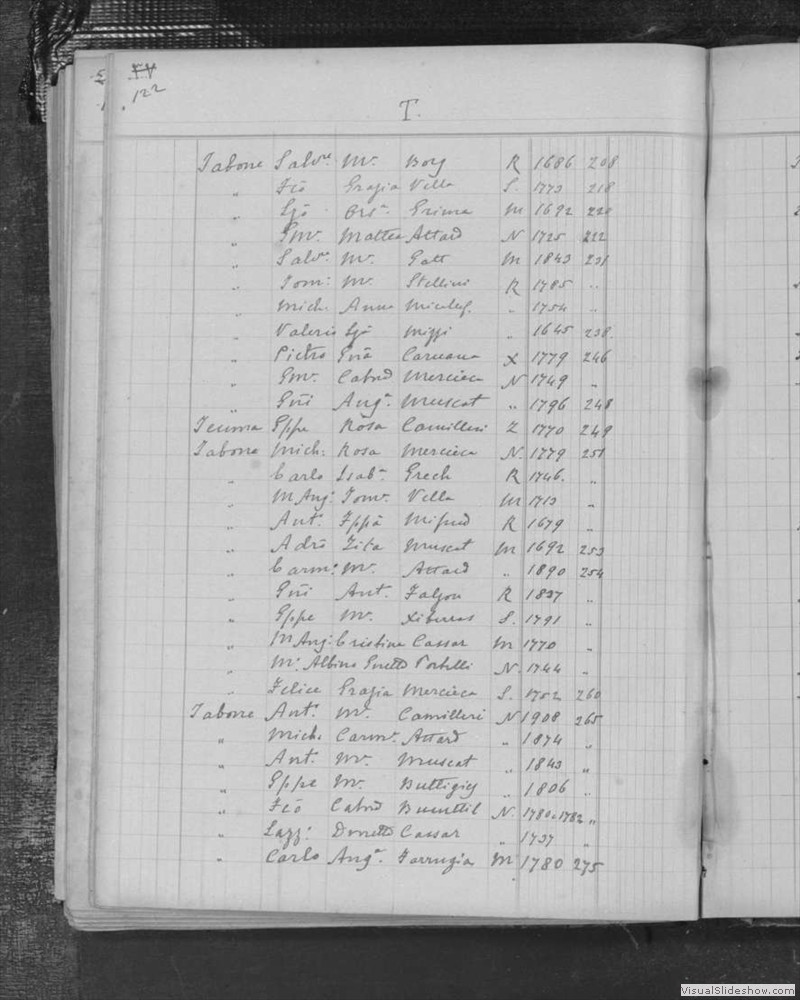 122
T.
Tabone Salvre Mr. Borg R 1686 208
„ Fcō Grazia Vella S. 1773 218
„ Gjō Orsa. Grima M 1692 220
„ Gmr. Mattea Attard N 1725 222
„ Salvre Mr. Gatt M 1843 231
„ Tom: Mr. Stellini R 1785 „
„ Mich. Anna Micalef. „ 1754 „
„ Valerio Gjō Mizzi „ 1645 238.
„ Pietro Gnā Caruana X 1779 246
„ Gmr. Catnd Mercieca N 1749 „
„ Gnī Anga. Muscat „ 1796 248
Teuma Gppe Rosa Camilleri Z 1770 249
Tabone Mich: Rosa Mercieca N. 1779 251
„ Carlo Isaba. Grech R 1746. „
„ M Ang: Tomr. Vella M 1713 „
„ Ant. Gppā Mifsud R 1679 „
„ Adrō Zita Muscat M 1692 253
„ Carmo. Mr. Attard „ 1890 254
„ Gnī Ant. Falzon R 1837 „
„ Gppe Mr. Xiberras S. 1791 „
„ M Ang: Cristina Cassar M 1770 „
„ Mr. Albino Portelli N. 1744 „
„ Felice Grazia Mercieca S. 1752 260
Tabone Ant. Mr. Camilleri N 1908 265
„ Mich. Carmr. Attard „ 1874 „
„ Ant. Mr. Muscat „ 1843 „
„ Gppe Mr. Buttigieg „ 1806 „
„ Fcō Catnd Bumttil N. 1780.1782 „
„ Lazz: Donetto Cassar „ 1737 „
„ Carlo Anga. Farrugia M 1780 275
VisualSlideshow.com